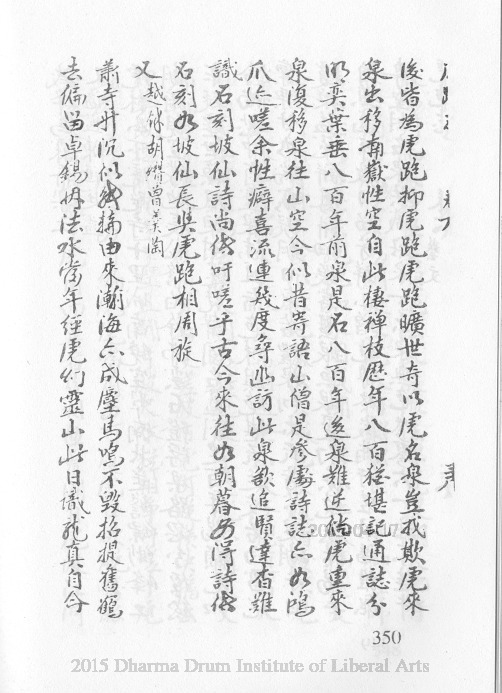 後皆為虎跑抑虎跑虎跑曠世奇以虎名泉豈我欺虎來
泉出移南嶽性空自此棲禪枝歷年八百猶堪記通誌分
明奕葉垂八百年前泉是石八百年後泉難逆倘虎重來
泉復移泉往山空今似昔寄語山僧是參處詩誌亦如鴻
爪迹嗟余性癖喜流連幾度尋幽訪此泉欲追賢達杳難
識石刻坡仙詩尚傳吁嗟乎古今來往如朝暮安得詩傳
石刻如坡仙長與虎跑相周旋
又 越 胡 曾
蕭寺升沉似 由來瀚海亦成塵馬鳴不毀招提舊鶴
去偏留卓錫 法水當年經虎 靈山此日 龍真自今
350
2015 Dharma Drum Institute of Liberal Arts